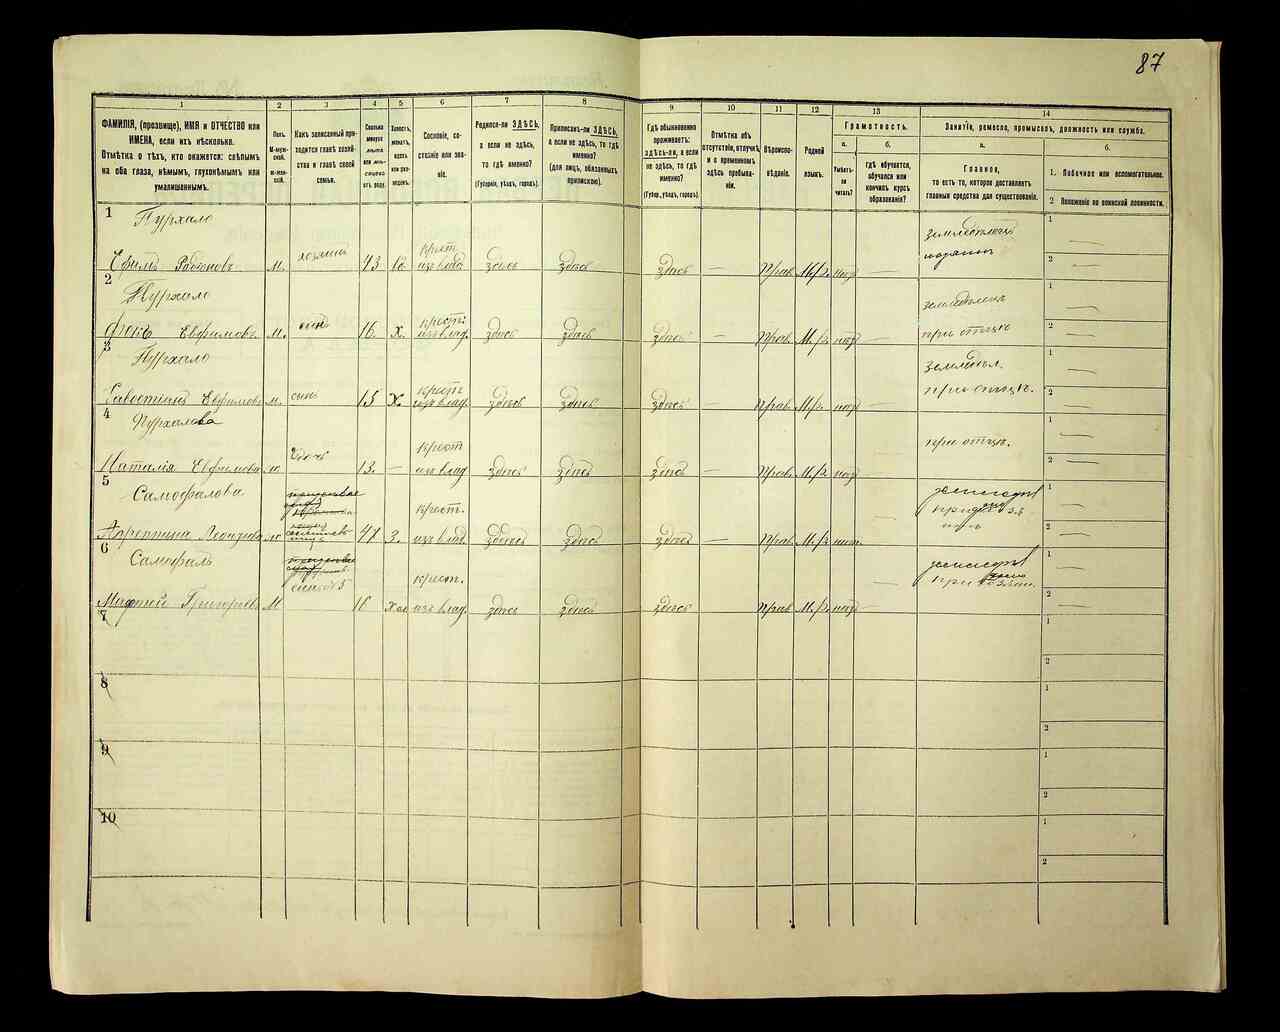 87
1 2 3 4 5 6 7 8 9 10 11 12 13 14
ФАМИЛІЯ, (прозвище), ИМЯ и ОТЧЕСТВО или
ИМЕНА, если ихъ нѣсколько.
Отмѣтка о тѣхъ, кто окажется: слѣпымъ
на оба глаза, нѣмымъ, глухонѣмымъ или
умалишеннымъ.
Полъ.
М-муж-
ской.
ж-жен-
скій.
Какъ записанный при-
ходится главѣ хозяй-
ства и главѣ своей
семьи.
Сколько
минуло
лѣтъ
или мѣс-
сяцевъ
отъ роду.
Холостъ,
женатъ,
вдовъ
или раз-
веденъ.
Сословіе, со-
стояніе или зва-
ніе.
Родился-ли ЗДѢСЬ,
а если не здѣсь,
то гдѣ именно?
(Губернія, уѣздъ, городъ).
Приписанъ-ли ЗДѢСЬ,
а если не здѣсь, то гдѣ
именно?
(для лицъ, обязанныхъ
припискою).
Гдѣ обыкновенно
проживаетъ:
здѣсь-ли, а если
не здѣсь, то гдѣ
именно?
(Губер., уѣздъ, городъ).
Отмѣтка объ
отсутствіи, отлучкѣ
и о временномъ
здѣсь пребыва-
ніи.
Вѣроиспо-
вѣданіе.
Родной
языкъ.
Грамотность.
а. б.
Умѣетъ-
ли
читать?
гдѣ обучается,
обучался или
кончилъ курсъ
образованія?
Занятіе, ремесло, промыселъ, должность или служба.
а. б.
Главное,
то есть то, которое доставляетъ
главныя средства для существованія.
1. Побочное или вспомогательное.
2 Положеніе по воинской повинности.
1 Пурхало земледѣлецъ 1 —
хозяинъ крест.
Ефимъ Родіоновъ м. 43 изъ влад здѣсь здѣсь здѣсь — Прав М.р. нѣтъ — 2 —
2 Пурхало земледѣлецъ 1 —
сынъ крест.
Евфимовъ м. 16. х. изъ влад. здѣсь здѣсь здѣсь — Прав М.р. нѣтъ при отцѣ 2 —
3 Пурхало земледѣл. 1 —
сынъ крест. при отцѣ.
Савостіянъ Евфимовъ м. 15 х. изъ влад. здѣсь здѣсь здѣсь — Прав М.р. нѣтъ 2 —
4 Пурхалова 1 —
дочь крест при отцѣ.
Наталія Евфимова ж. 13. — изъ влад здѣсь здѣсь здѣсь — Прав М.р. нѣтъ 2 —
5 Самофалова 1 —
крест. при
47 з. изъ влад. здѣсь здѣсь здѣсь — Прав М.р. нѣт. — 2 —
6 Самофалъ 1 —
сынъ №5 крест. при
Григорьевъ м 16 хол изъ влад. здѣсь здѣсь здѣсь Прав М.р. нѣтъ — 2 —
7 1
2
8 1
2
9 1
2
10 1
2